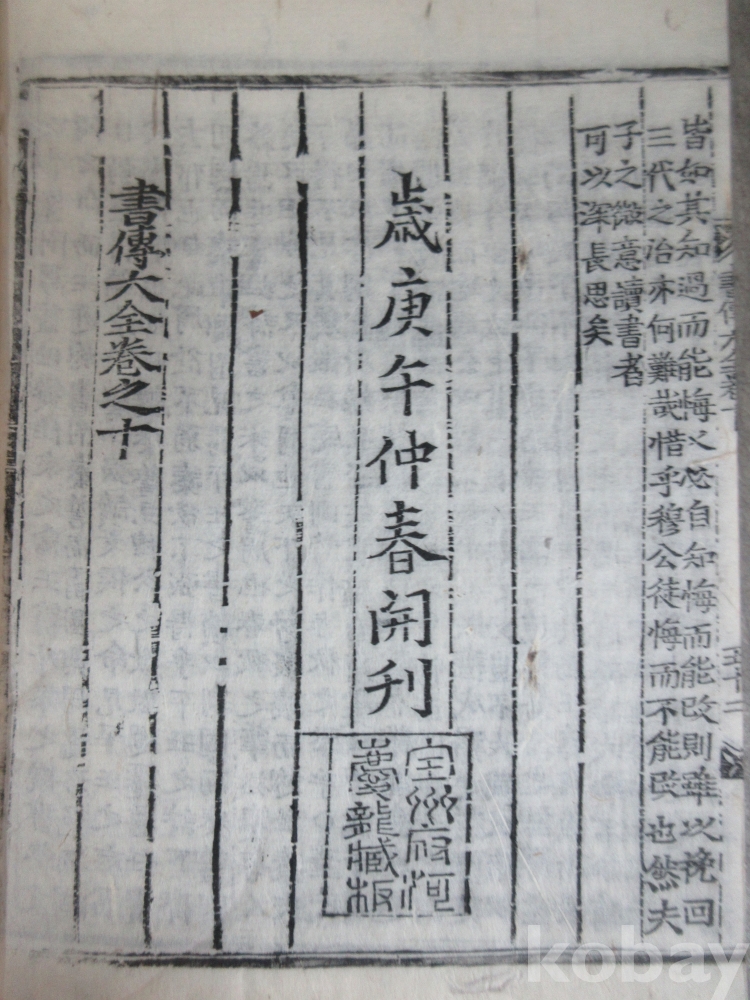 皆如其知過而能悔又必自知悔而能改則雖以挽回
三代之治來何難哉惜乎穆公徒悔而不能改也然夫
子之微意讀書者
可以深長思矣
歲庚午仲春開刊
全州府河
慶龍藏板
書傳大全卷之十
書傳大全卷十
五十二
kobay